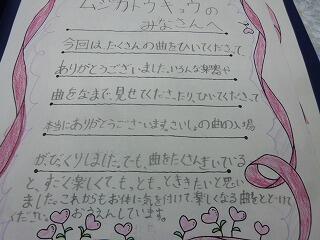 ムジカトウキョウの
みなさんへ
今回は、たくさんの曲をひいてくださって
ありがとうございました。いろんな楽器や
曲をなまで、見せてくださったり、ひいてくださって
本当にありがとうございます。さいしょの曲の入場
がびっくりしました。でも、曲をたくさんきいている
と、すごく楽しくて、もっともっとききたいと思い
ました。これからもお体に気を付けて、楽しくなる曲をとどけて
ください。おうえんしています。